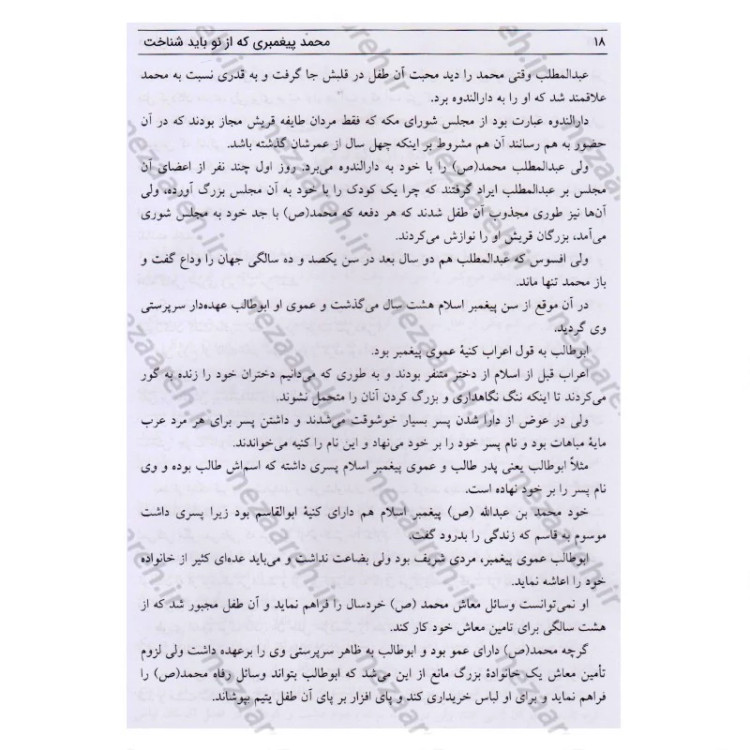 ۱۸ محمد پیغمبری که از نو باید شناخت
عبدالمطلب وقتی محمد را دید محبت آن طفل در قلبش جا گرفت و به قدری نسبت به محمد
علاقمند شد که او را به دارالندوه برد.
دارالندوه عبارت بود از مجلس شورای مکه که فقط مردان طایفه قریش مجاز بودند که در آن
حضور به هم رسانند آن هم مشروط بر اینکه چهل سال از عمرشان گذشته باشد.
ولی عبدالمطلب محمد(ص) را با خود به دارالندوه می‌برد. روز اول چند نفر از اعضای آن
مجلس بر عبدالمطلب ایراد گرفتند که چرا یک کودک را با خود به آن مجلس بزرگ آورده، ولی
آن‌ها نیز طوری مجذوب آن طفل شدند که هر دفعه که محمد(ص) با جد خود به مجلس شوری
می‌آمد، بزرگان قریش او را نوازش می‌کردند.
ولی افسوس که عبدالمطلب هم دو سال بعد در سن یکصد و ده سالگی جهان را وداع گفت و
باز محمد تنها ماند.
در آن موقع از سن پیغمبر اسلام هشت سال می‌گذشت و عموی او ابوطالب عهده‌دار سرپرستی
وی گردید.
ابوطالب به قول اعراب کنیهٔ عموی پیغمبر بود.
اعراب قبل از اسلام از دختر متنفر بودند و به طوری که می‌دانیم دختران خود را زنده به گور
می‌کردند تا اینکه ننگ نگاهداری و بزرگ کردن آنان را متحمل نشوند.
ولی در عوض از دارا شدن پسر بسیار خوشوقت می‌شدند و داشتن پسر برای هر مرد عرب
مایهٔ مباهات بود و نام پسر خود را بر خود می‌نهاد و این نام را کنیه می‌خواندند.
مثلاً ابوطالب یعنی پدر طالب و عموی پیغمبر اسلام پسری داشته که اسم‌اش طالب بوده و وی
نام پسر را بر خود نهاده است.
خود محمد بن عبدالله (ص) پیغمبر اسلام هم دارای کنیهٔ ابوالقاسم بود زیرا پسری داشت
موسوم به قاسم که زندگی را بدرود گفت.
ابوطالب عموی پیغمبر، مردی شریف بود ولی بضاعت نداشت و می‌باید عده‌ای کثیر از خانواده
خود را اعاشه نماید.
او نمی‌توانست وسائل معاش محمد (ص) خردسال را فراهم نماید و آن طفل مجبور شد که از
هشت سالگی برای تامین معاش خود کار کند.
گرچه محمد(ص) دارای عمو بود و ابوطالب به ظاهر سرپرستی وی را برعهده داشت ولی لزوم
تأمین معاش یک خانوادهٔ بزرگ مانع از این می‌شد که ابوطالب بتواند وسائل رفاه محمد(ص) را
فراهم نماید و برای او لباس خریداری کند و پای افزار بر پای آن طفل یتیم بپوشاند.
nezaareh.ir